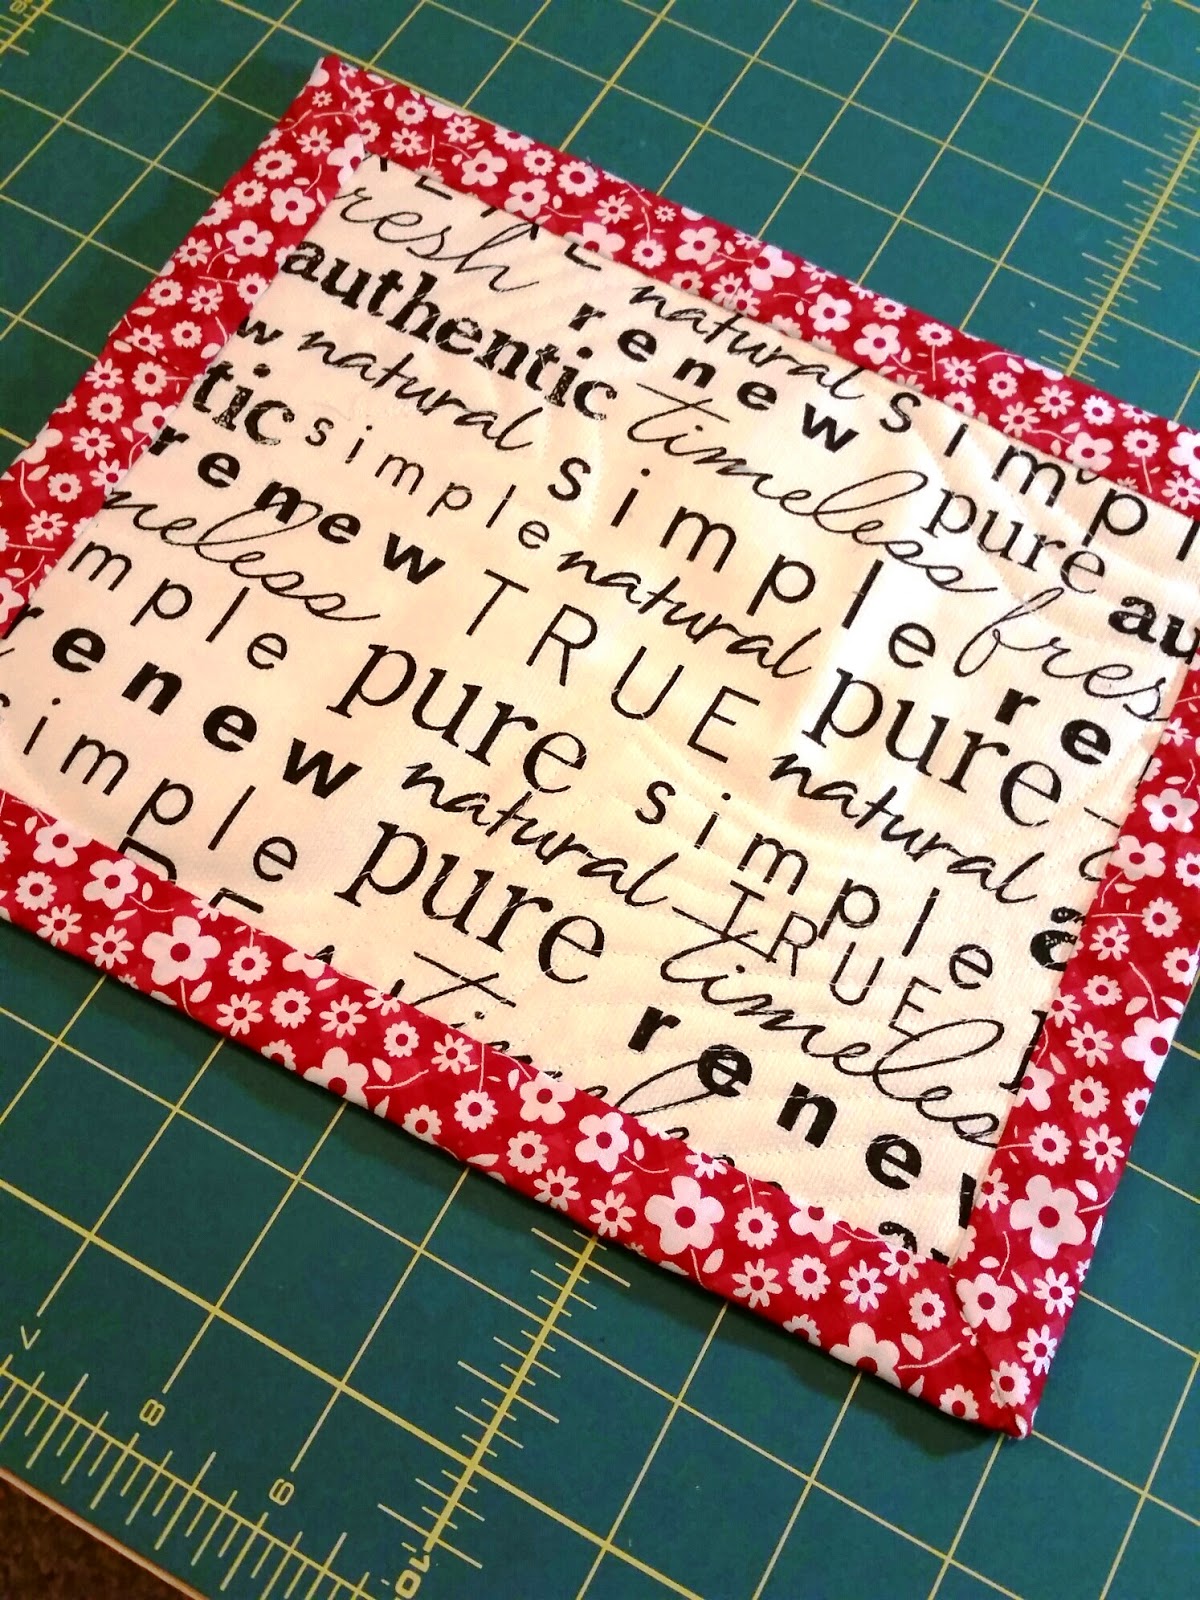 resh natural simpl
authentic renew pure au
w natural timeless fres
tic simple simple re
renew natural pure
meless TRUE natural
imple pure simple
renew natural TRUE
simple pure timeless
time renew
7 8 9 10